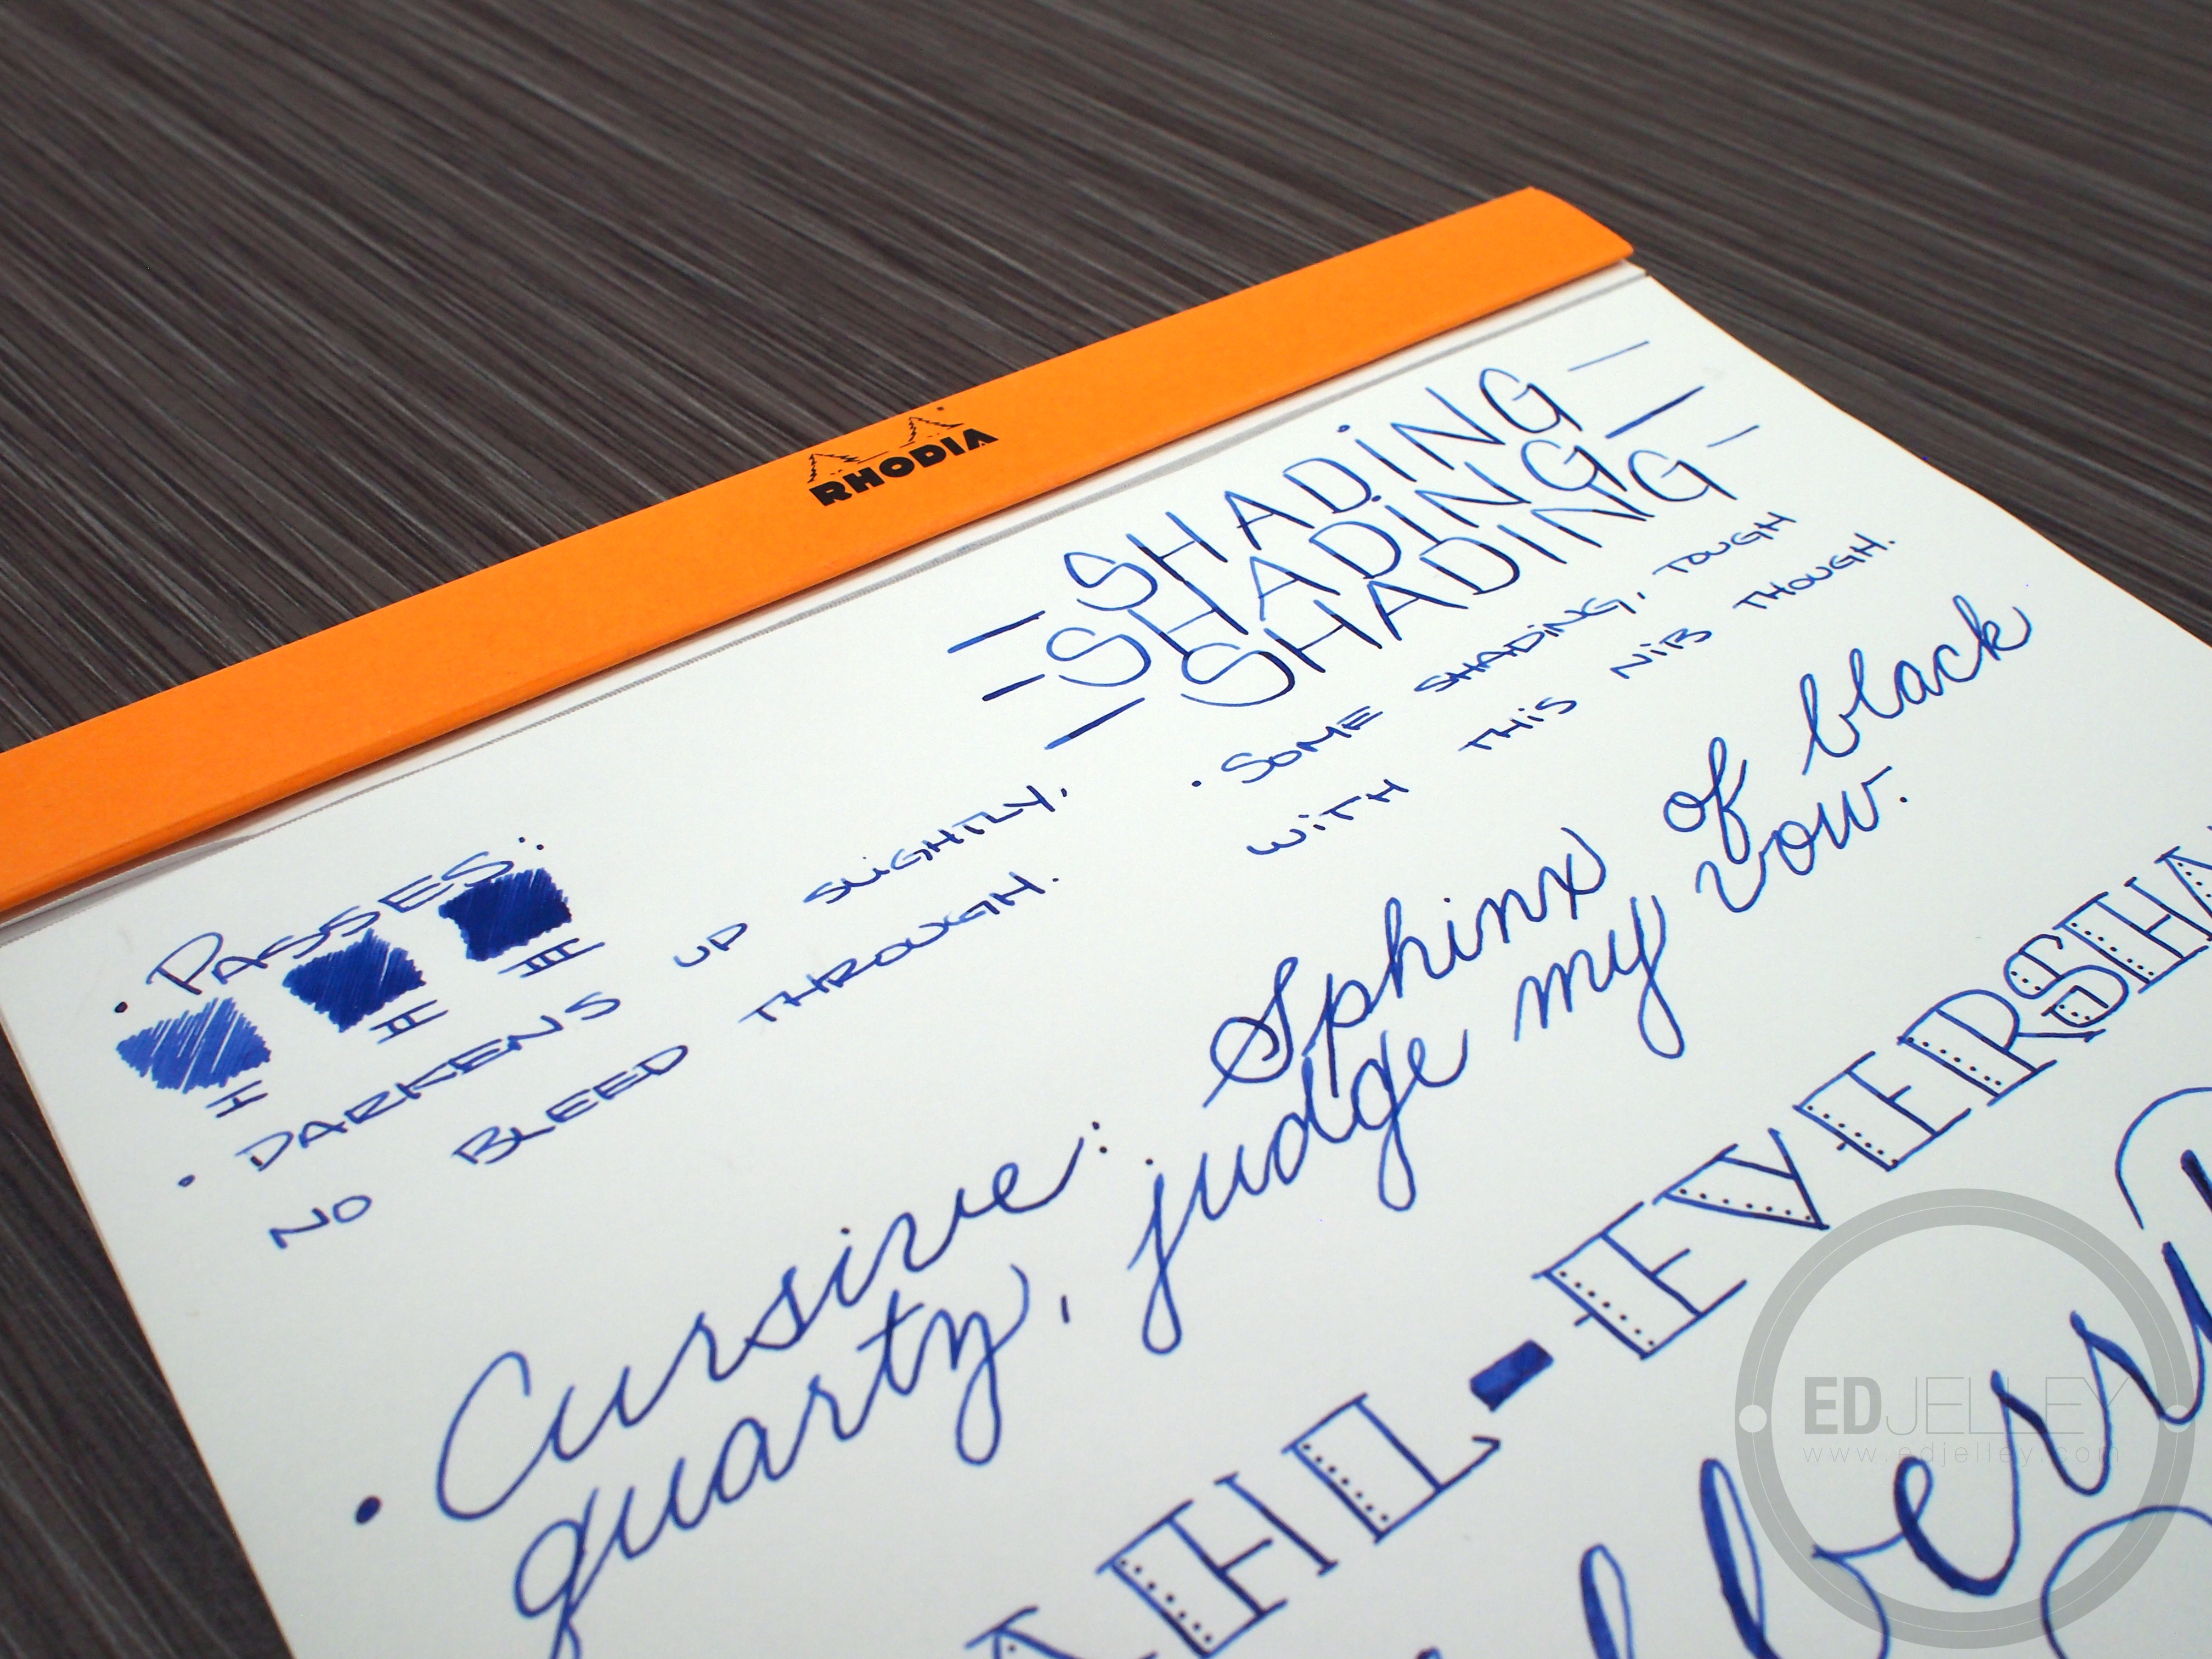 RHODIA
— SHADING —
— SHADING —
— SHADING —
• SOME SHADING, TOUGH
WITH THIS NIB THOUGH.
• PASSES:
I II III
• DARKENS UP SLIGHTLY,
NO BLEED THROUGH.
• Cursive: Sphinx of black
quartz, judge my vow.
AHL - EVERSHA
EDJELLEY
www.edjelley.com